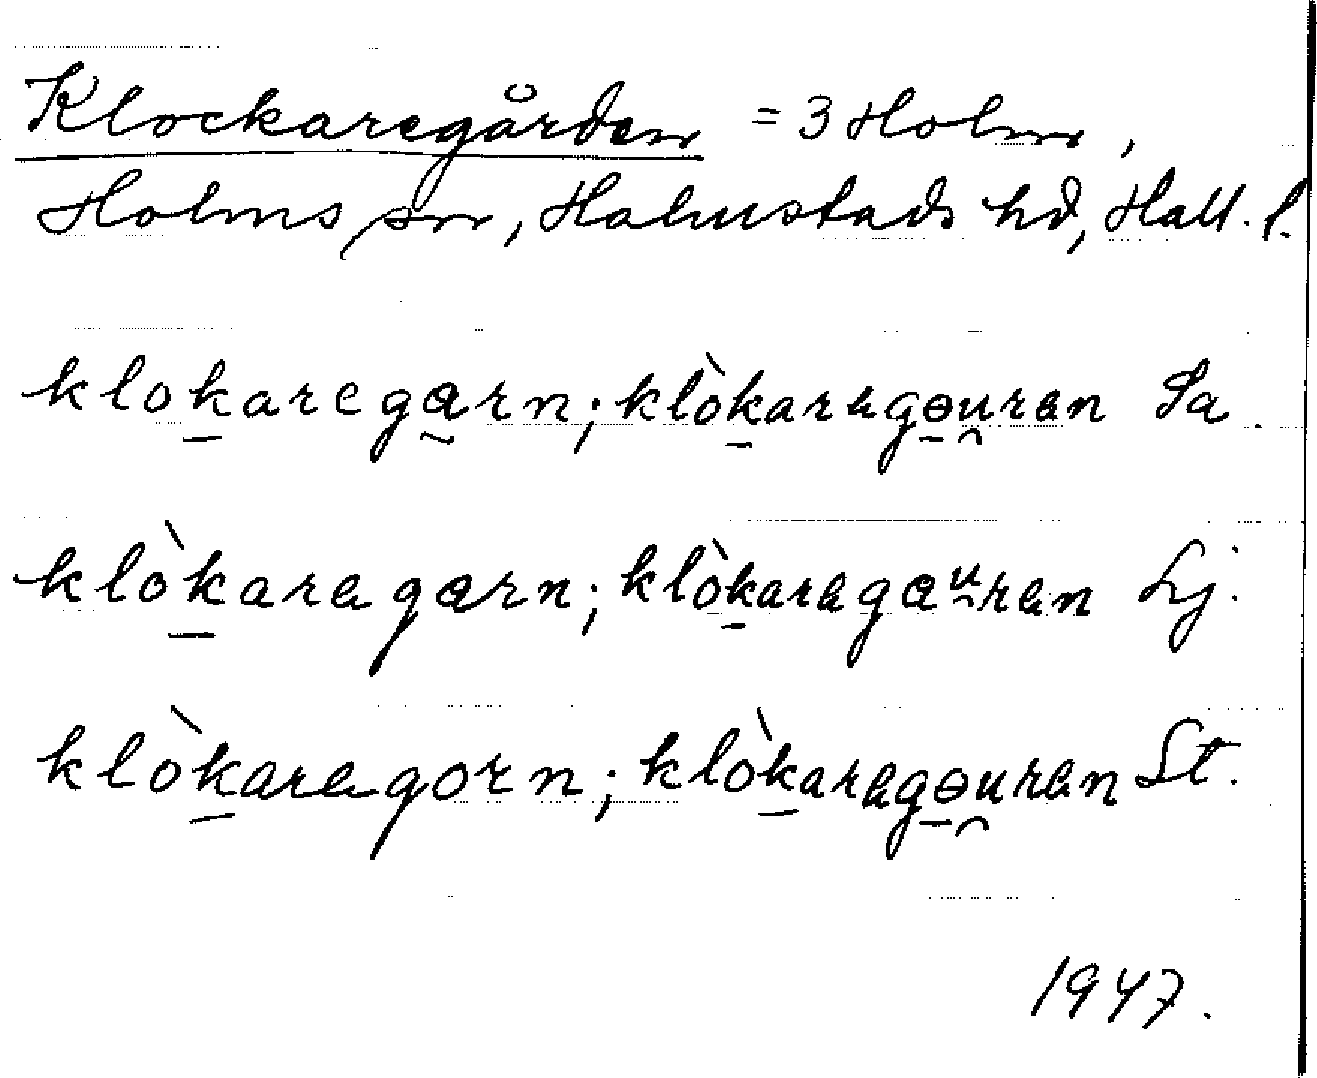 Klockaregården = 3 Holm,
Holms sn, Halmstads hd, Hall. l.
klok̠arega̰rn; klòk̠aregə̠u̯ren Sa.
klòk̠aregarn; klòk̠aregau̯ren Lj.
klòk̠aregorn; klòk̠aregə̠u̯ren St.
1947.